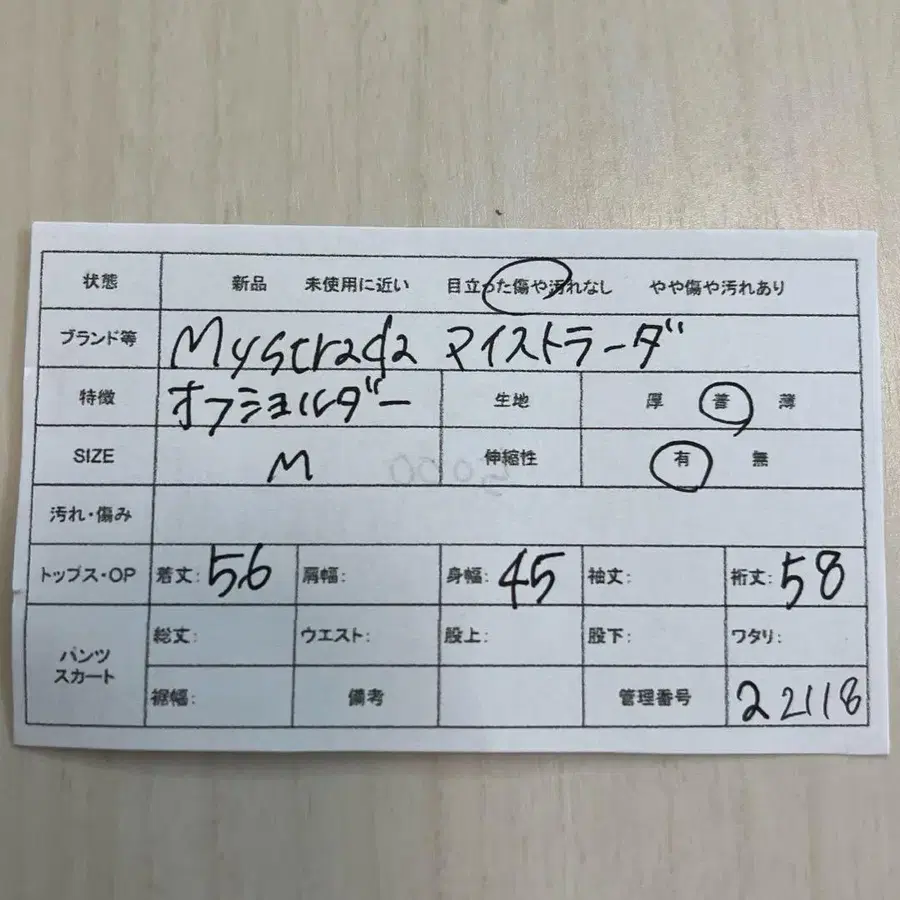 状態 新品 未使用に近い 目立った傷や汚れなし やや傷や汚れあり
ブランド等 Mystrada マイストラーダ
特徴 オフショルダー 生地 厚 普 薄
SIZE M 伸縮性 有 無
汚れ・傷み
トップス・OP 着丈: 56 肩幅: 身幅: 45 袖丈: 裄丈: 58
パンツ スカート
総丈: ウエスト: 股上: 股下: ワタリ:
裾幅: 備考 管理番号 22118